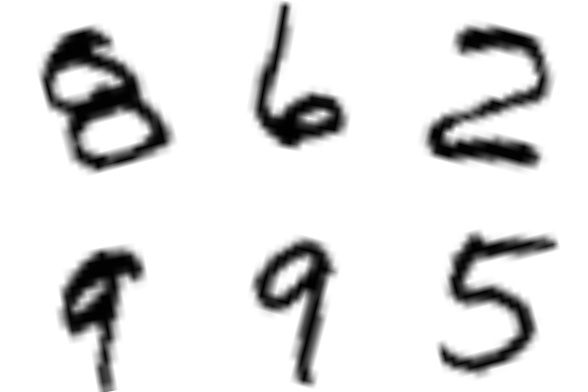 8 6 2
9 9 5